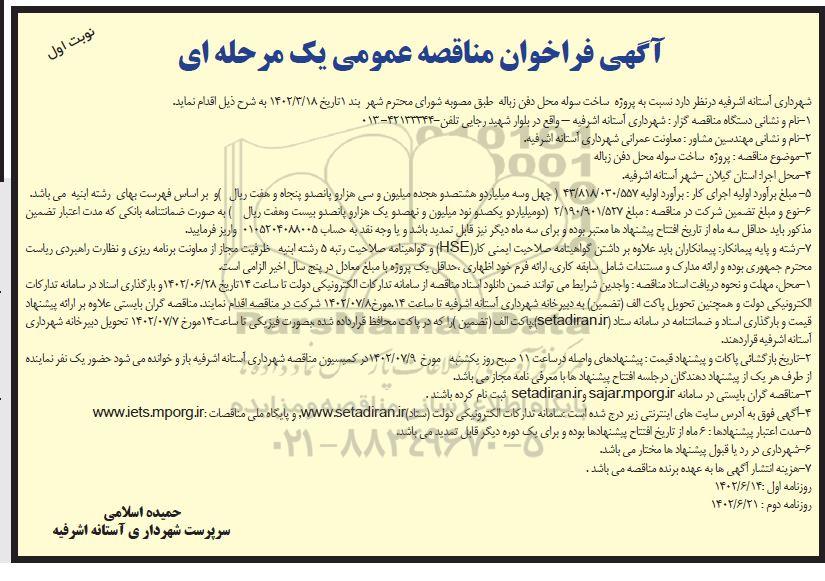 نوبت اول
آگهی فراخوان مناقصه عمومی یک مرحله ای
شهرداری آستانه اشرفیه درنظر دارد نسبت به پروژه ساخت سوله محل دفن زباله طبق مصوبه شورای محترم شهر بند ۱تاریخ ۱۴۰۲/۳/۱۸ به شرح ذیل اقدام نماید.
۱-نام و نشانی دستگاه مناقصه گزار : شهرداری آستانه اشرفیه – واقع در بلوار شهید رجایی تلفن-۴۲۱۳۳۳۴۴-۰۱۳
۲-نام و نشانی مهندسین مشاور : معاونت عمرانی شهرداری آستانه اشرفیه.
۳-موضوع مناقصه : پروژه ساخت سوله محل دفن زباله
۴-محل اجرا: استان گیلان –شهر آستانه اشرفیه.
۵- مبلغ برآورد اولیه اجرای کار : برآورد اولیه ۴۳/۸۱۸/۰۳۰/۵۵۷ ( چهل وسه میلیاردو هشتصدو هجده میلیون و سی هزارو پانصدو پنجاه و هفت ریال )و بر اساس فهرست بهای رشته ابنیه می باشد.
۶-نوع و مبلغ تضمین شرکت در مناقصه : مبلغ ۲/۱۹۰/۹۰۱/۵۲۷ (دومیلیاردو یکصدو نود میلیون و نهصدو یک هزارو پانصدو بیست وهفت ریال ) به صورت ضمانتنامه بانکی که مدت اعتبار تضمین
مذکور باید حداقل سه ماه از تاریخ افتتاح پیشنهاد ها معتبر بوده و برای سه ماه دیگر نیز قابل تمدید باشد و یا وجه نقد به حساب ۰۱۰۵۲۰۴۰۸۸۰۰۵ واریز فرمایید.
۷-رشته و پایه پیمانکار: پیمانکاران باید علاوه بر داشتن گواهینامه صلاحیت ایمنی کار(HSE) و گواهینامه صلاحیت رتبه ۵ رشته ابنیه ظرفیت مجاز از معاونت برنامه ریزی و نظارت راهبردی ریاست
محترم جمهوری بوده و ارائه مدارک و مستندات شامل سابقه کاری، ارائه فرم خود اظهاری ،حداقل یک پروژه با مبلغ معادل در پنج سال اخیر الزامی است.
۱-محل، مهلت و نحوه دریافت اسناد مناقصه : واجدین شرایط می توانند ضمن دانلود اسناد مناقصه از سامانه تدارکات الکترونیکی دولت تا ساعت ۱۴تاریخ ۱۴۰۲/۰۶/۲۸و بارگذاری اسناد در سامانه تدارکات
الکترونیکی دولت و همچنین تحویل پاکت الف (تضمین) به دبیرخانه شهرداری آستانه اشرفیه تا ساعت ۱۴.مورخ۱۴۰۲/۰۷/۸ شرکت در مناقصه اقدام نمایند. مناقصه گران بایستی علاوه بر ارائه پیشنهاد
قیمت و بارگذاری اسناد و ضمانتنامه در سامانه ستاد (setadiran.ir)،پاکت الف (تضمین )را که در پاکت محافظ قرارداده شده ،بصورت فیزیکی تا ساعت۱۴مورخ ۱۴۰۲/۰۷/۷ تحویل دبیرخانه شهرداری
آستانه اشرفیه قراردهند.
۲-تاریخ بازگشائی پاکات و پیشنهاد قیمت : پیشنهادهای واصله درساعت ۱۱ صبح روز یکشنبه مورخ ۱۴۰۲/۰۷/۹در کمیسیون مناقصه شهرداری آستانه اشرفیه باز و خوانده می شود حضور یک نفر نماینده
از طرف هر یک از پیشنهاد دهندگان درجلسه افتتاح پیشنهاد ها با معرفی نامه مجاز می باشد.
۳-مناقصه گران بایستی در سامانه sajar.mporg.ir وsetadiran.ir ثبت نام کرده باشند .
۴-آگهی فوق به آدرس سایت های اینترنتی زیر درج شده است :سامانه تدارکات الکترونیکی دولت (ستاد)www.setadiran.ir, و پایگاه ملی مناقصات :www.iets.mporg.ir
۵-مدت اعتبار پیشنهادها : ۶ ماه از تاریخ افتتاح پیشنهادها بوده و برای یک دوره دیگر قابل تمدید می باشد.
۶-شهرداری در رد یا قبول پیشنهاد ها مختار می باشد.
۷-هزینه انتشار آگهی ها به عهده برنده مناقصه می باشد .
روزنامه اول :۱۴۰۲/۶/۱۴
روزنامه دوم : ۱۴۰۲/۶/۲۱
حمیده اسلامی
سرپرست شهرداری آستانه اشرفیه
ParsNamadData
۰۲۱-۸۸۳۴۹۶۷۰-۵